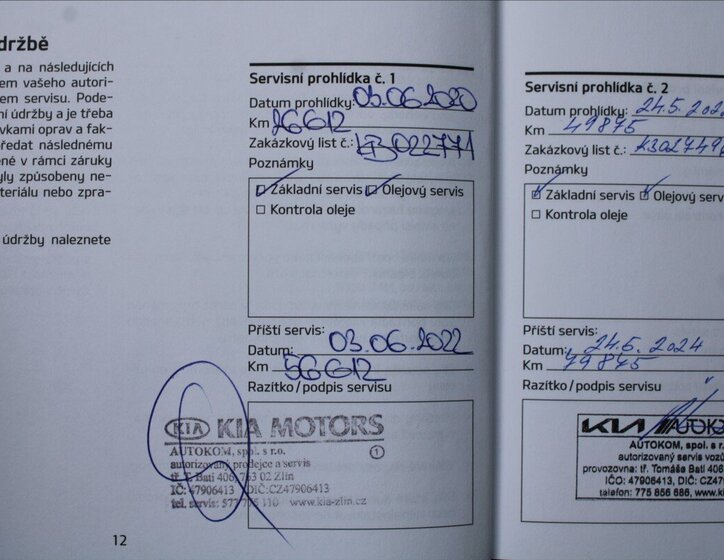 držbě
a na následujících
em vašeho autori-
em servisu. Pode-
ní údržby a je třeba
vkami oprav a fak-
ředat následnému
né v rámci záruky
yly způsobeny ne-
teriálu nebo zpra-
údržby naleznete
12
Servisní prohlídka č. 1
Datum prohlídky: 03.06.2020
Km 26612
Zakázkový list č.:
Poznámky
Základní servis Olejový servis
Kontrola oleje
Příští servis:
Datum: 03.06.2022
Km 56612
Razítko/podpis servisu
KIA KIA MOTORS
AUTOKOM, spol. s r.o.
1
autorizovaný prodejce a servis
tř. T. Bati 406, 763 02 Zlín
IČ: 47906413 DIČ:CZ47906413
tel. servis: www.kia-zlin.cz
Servisní prohlídka č. 2
Datum prohlídky: 24.5.202
Km 49875
Zakázkový list č.:
Poznámky
Základní servis Olejový serv
Kontrola oleje
Příští servis:
Datum: 24.5.2024
Km 79875
Razítko/podpis servisu
KIA AUTOKO
AUTOKOM, spol. s r
autorizovaný servis vozů
provozovna: tř. Tomáše Bati 408
IČO: 47906413, DIČ: CZ47
telefon: 775 856 686, www.k